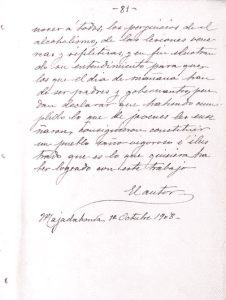 - 81 -
nocer á todos, los perjuicios del
alcoholismo, de las lesiones vene-
reas y sifilíticas, y en fin ilustran-
do su entendimiento para que,
los que el dia de mañana han
de ser padres y gobernantes, pue-
dan declarar que habiendo cum-
plido lo que de jovenes les ense-
ñaron, consiguieron constituir
un pueblo sano vigoroso é ilus-
trado que es lo que quisiera ha
ber logrado con este trabajo
El autor
Majadahonda Octubre 1908-